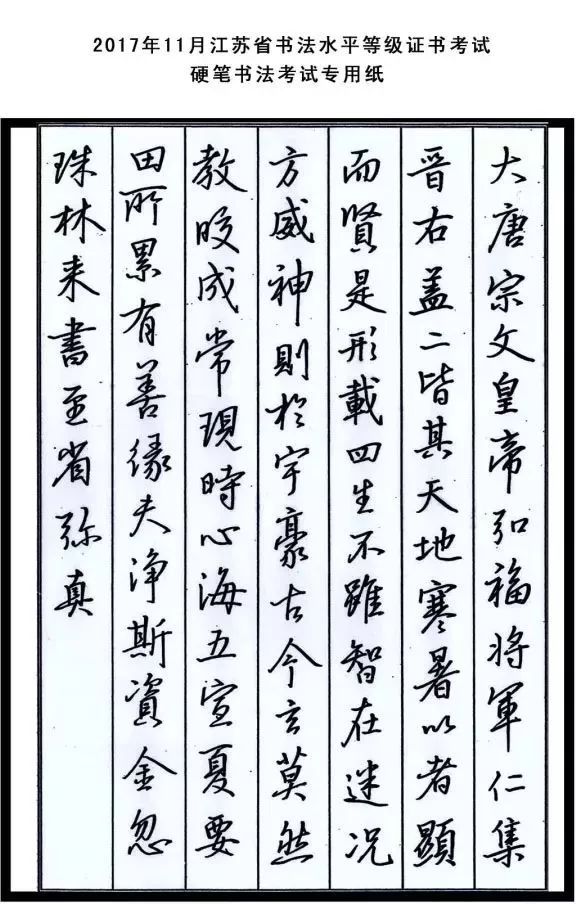 2017年11月江苏省书法水平等级证书考试
硬笔书法考试专用纸
大唐宗文皇帝弘福将軍仁集
晋右盖二皆其天地寒暑以者顯
而賢是形載四生不雖智在迷况
方威神則於宇豪古今言莫然
教晈成常現時心海五宣夏要
田所累有善缘夫净斯資金忽
珠林来書至省弥真